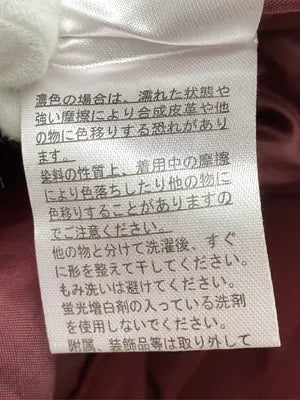 濃色の場合は、濡れた状態や
強い摩擦により合成皮革や他
の物に色移りする恐れがあり
ます。
染料の性質上、着用中の摩擦
により色落ちしたり他の物に
色移りすることがありますの
でご注意ください。
他の物と分けて洗濯後、すぐ
に形を整えて干してください。
もみ洗いは避けてください。
蛍光増白剤の入っている洗剤
を使用しないでください。
附属、装飾品等は取り外して